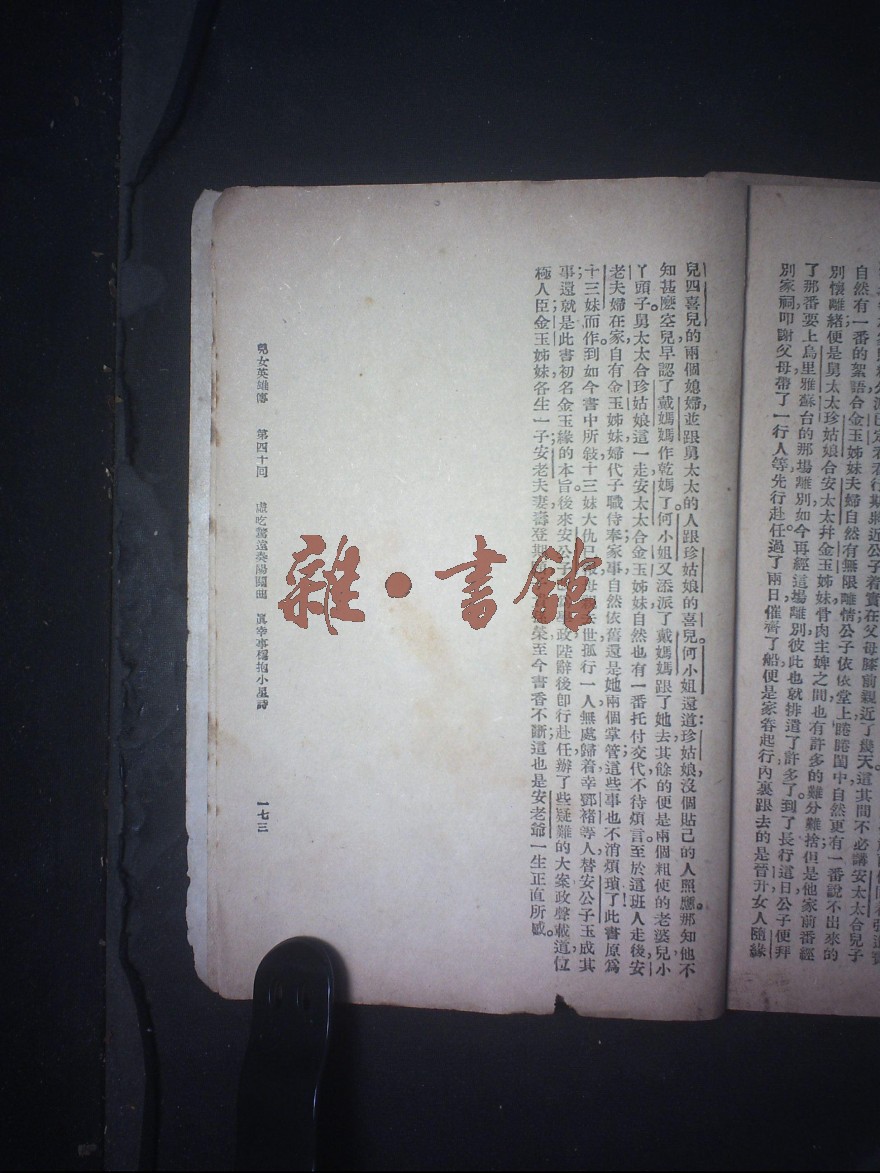 自然有一番的絮語合金玉姊妹夫婦自然有無限離情公子依依堂上睠睠閨中自然更有一番說不出來的
別懷離緒便是舅太太珍姑娘合安太太幷金玉姊妹骨肉主婢之間也有許多的難分難捨但是他家前番經
了那番要上烏里雅蘇台的那場離別如今再經這場離別彼此也就排遣了許多了到了長行這日公子便拜
別家祠叩謝父母帶了一行人等先行赴任過了兩日催齊了船便是家眷起行內裏跟去的是晉升女人隨緣
兒四喜兒的兩個媳婦並跟舅太太的人跟珍姑娘的喜兒何小姐還道珍姑娘沒個貼己的人照應那知他不
知甚麼空兒早認了戴媽媽作乾媽了何小姐又添派了戴媽媽跟了她去其餘的便是兩個粗使的老婆兒小
丫頭子。舅太太合珍姑娘這一走安太太合金玉姊妹自然也有一番托付交代不待煩言至於這班人走後安
老夫婦在家自有金玉姊妹婦代子職侍奉家事自然依舊還是她兩個掌管這些事也不消煩瑣了此書原爲
十三妹而作到如今書中所敍十三妹大仇已世孤行一人無處歸着幸鄧褚等人替安公子玉成其
事還就是此書初名金玉緣的本旨後來安公政陛辭後卽行赴任辦了些疑難的大案政聲載道位
極人臣金玉姊妹各生一子安老夫妻壽登期榮至今書香不斷這也是安老爺一生正直所感。
兒女英雄傳 第四十回 虛吃驚遠奏陽關曲 眞幸事穩抱小星詩 一七三
雜·書館